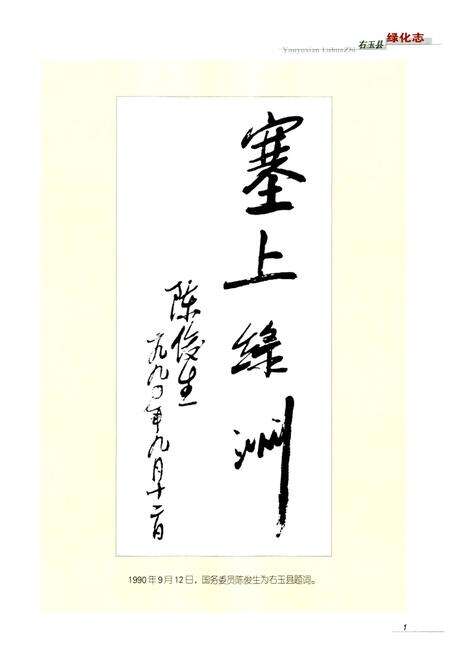 Youyuxian LuhuaZhi 右玉县 绿化志
塞上绿洲
陈俊生
一九九〇年九月十二日
1990年9月12日，国务委员陈俊生为右玉县题词。
1